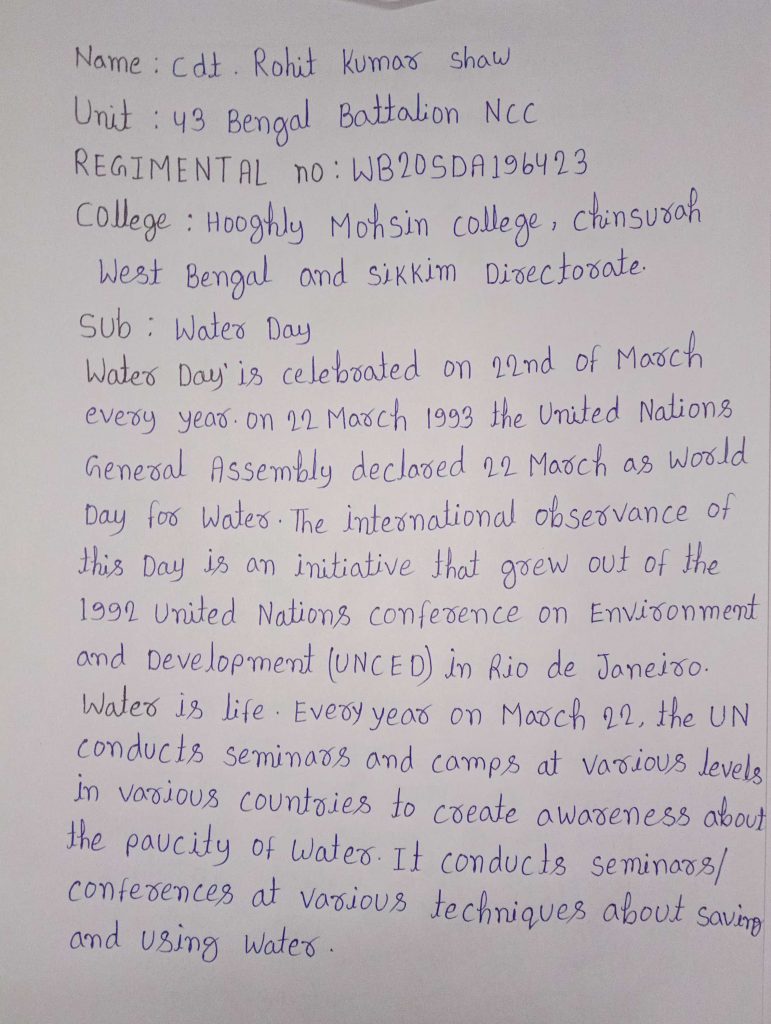 Name : Cdt. Rohit Kumar Shaw
Unit : 43 Bengal Battalion NCC
REGIMENTAL no : WB20SDA196423
College : Hooghly Mohsin college, Chinsurah
West Bengal and Sikkim Directorate.
Sub : Water Day
Water Day' is celebrated on 22nd of March
every year. on 22 March 1993 the United Nations
General Assembly declared 22 March as World
Day for Water. The international observance of
this Day is an initiative that grew out of the
1992 United Nations conference on Environment
and Development (UNCED) in Rio de Janeiro.
Water is life. Every year on March 22, the UN
conducts seminars and camps at various levels
in various countries to create awareness about
the paucity of Water. It conducts seminars/
conferences at various techniques about saving
and using water.